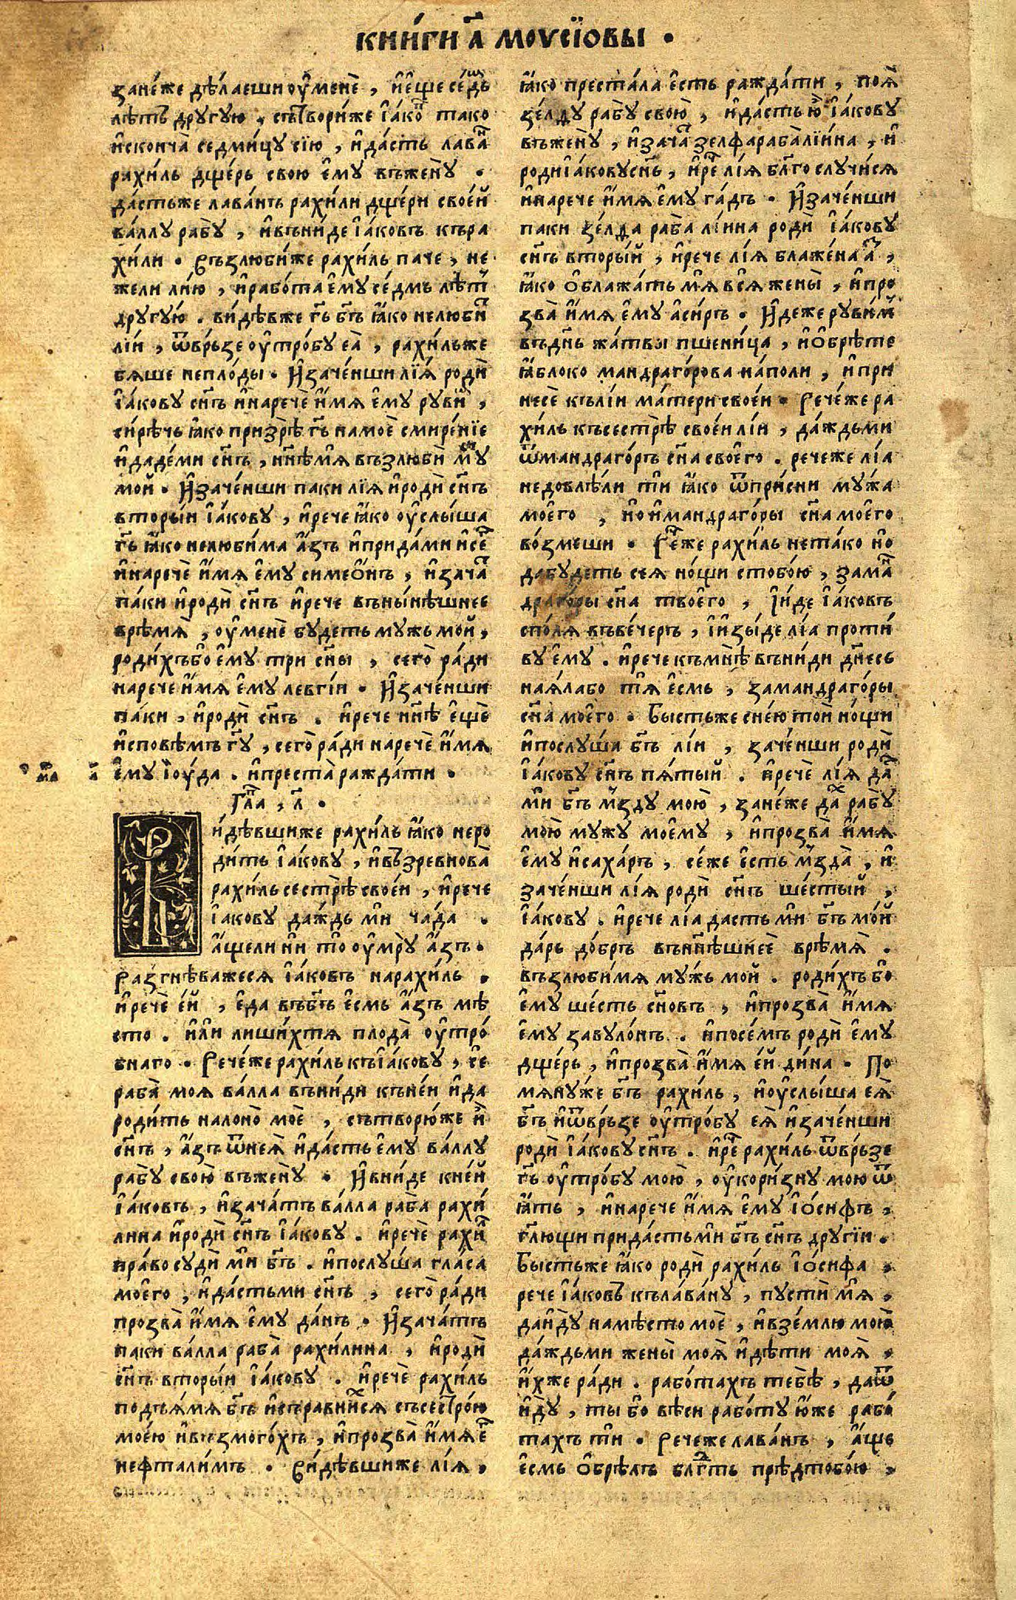 книги а҃ моусїовы ·
занеже дѣлаеши оу мене , и еще седмь
лѣтъ другую . сътвори же їаковъ тако
исконча седмицу сїю , и дасть лаванъ
рахиль дщерь свою ему въжену .
дастьже лаванъ рахили дщери своей
валлу рабу , и въниде їаковъ къ ра
хили . възлюби же рахиль паче , не
жели лию , и работа ему седмь лѣтъ
другую . видѣвже гь бгъ ꙗко нелюбим
лїи , ѿврьзе оутробу еа , рахильже
бяше неплоды . Изаченши лїя роди
їакову снъ и нарече имя ему рувим ,
сирѣчь ꙗко призрѣ гь на мое смиренїе
и дадеми снъ , и ннѣ мя възлюби мужъ
мой . Изаченши паки лїя и роди снъ
вторыи їакову , и рече ꙗко оуслыша
гь ꙗко нелюбима азъ и придами и сего
и нарече имя ему симеонъ , и зачат
паки и роди снъ и рече в нынѣшнее
врѣмя , оу мене будеть мужь мой ,
родихъ бо ему три сны , сего ради
нарече имя ему левгїи . Изаченши
паки , и роди снъ . и рече ннѣ еще
исповѣмъ гу , сего ради нарече имя
ему їоуда . и преста раждати .
Гла , л҃ .
идѣвшиже рахиль ꙗко неро
дить їакову , и възревнова
рахиль сестрѣ своеи , и рече
їакову даждь ми чада .
аще ли ни то оумру азъ .
разгнѣважеся їаковъ на рахиль .
и рече ей , еда въ бгъ есмь азъ мѣ
сто . или лишихтя плода оутро
бнаго . Рече же рахиль къ їакову , се
раба моя валла въниди къ неи и да
родить на лоно мое , сътворю же и
снъ , азъ ѿ нея и дасть ему валлу
рабу свою въжену . И вниде к ней
їаковъ , и зачатъ валла раба рахи
лина и роди снъ їакову . и рече рахил
право суди ми бгъ . и послуша гласа
моего , и дастьми снъ , сего ради
прозва имя ему данъ . И зачатъ
паки валла раба рахилина , и роди
снъ вторыи їакову . и рече рахиль
подъя мя бгъ и съравнихся съ сестрою
моею и възмогохъ , и прозва имя е
нефталимъ . Видѣвшиже лїя ,
ꙗко престала есть раждати , поя
зелду рабу свою , и дасть ю їакову
въ жену , и зача зелфа раба лїина , и
роди їакову снъ , и рече лїя благо случися
и нарече имя ему гадъ . И заченши
паки зелда раба лїина роди їакову
снъ вторый , и рече лїя блаженна азъ ,
ꙗко облажать мя вся жены , и про
зва имя ему асиръ . Идеже рувим
въ днь жатвы пшеница , и обрѣте
ꙗблоко мандрагорова на поли , и при
несе къ лїи матери своеи . Рече же ра
хиль къ сестрѣ своеи лїи , даждьми
ѿ мандрагоръ сна своего . рече же лїа
недовлѣли ти ꙗко ѿ присни мужа
моего , но и мандрагоры сна моего
возмеши . Рече же рахиль нетако но
да будеть сея нощи с тобою , за ман
драгоры сна твоего , їиде їаковъ
с поля въвечеръ , и изыде лїа проти
ву ему . и рече къ мнѣ въниди днесь
наялабо тя есмь , за мандрагоры
сна моего . Бысть же с нею той нощи
и послуша бгъ лїи , заченши роди
їакову снъ пятый . и рече лїя дал
ми бгъ мзду мою , занеже дах рабу
мою мужу моему , и прозва имя
ему исахаръ , се же есть мзда , и
заченши лїя роди снъ шестый ,
їакову . и рече лїа дасть ми бгъ мой
даръ добръ в ннѣшнее врѣмя .
възлюбимя мужь мой . родихъ бо
ему шесть сновъ , и прозва имя
ему завулонъ . и посемъ роди ему
дщерь , и прозва имя ей дина . По
мянуже бгъ рахиль , и оуслыша ея
бгъ и ѿврьзе оутробу ея и заченши
роди їакову снъ . и рече рахиль ѿврьзе
гь оутробу мою , оукоризну мою ѿ
ꙗть , и нарече имя ему їосифъ ,
глющи придасть ми бгъ снъ другїи .
Бысть же ꙗко роди рахиль їосифа ,
рече їаковъ къ лавану , пусти мя ,
да иду на мѣсто мое , и в землю мою
даждьми жены моя и дѣти моя ,
ихже ради . работахъ тебѣ , да ѿ
иду , ты бо вѣси работу юже рабо
тахъ ти . Рече же лаванъ , аще
есмь обрѣлъ блгть прѣдтобою ,